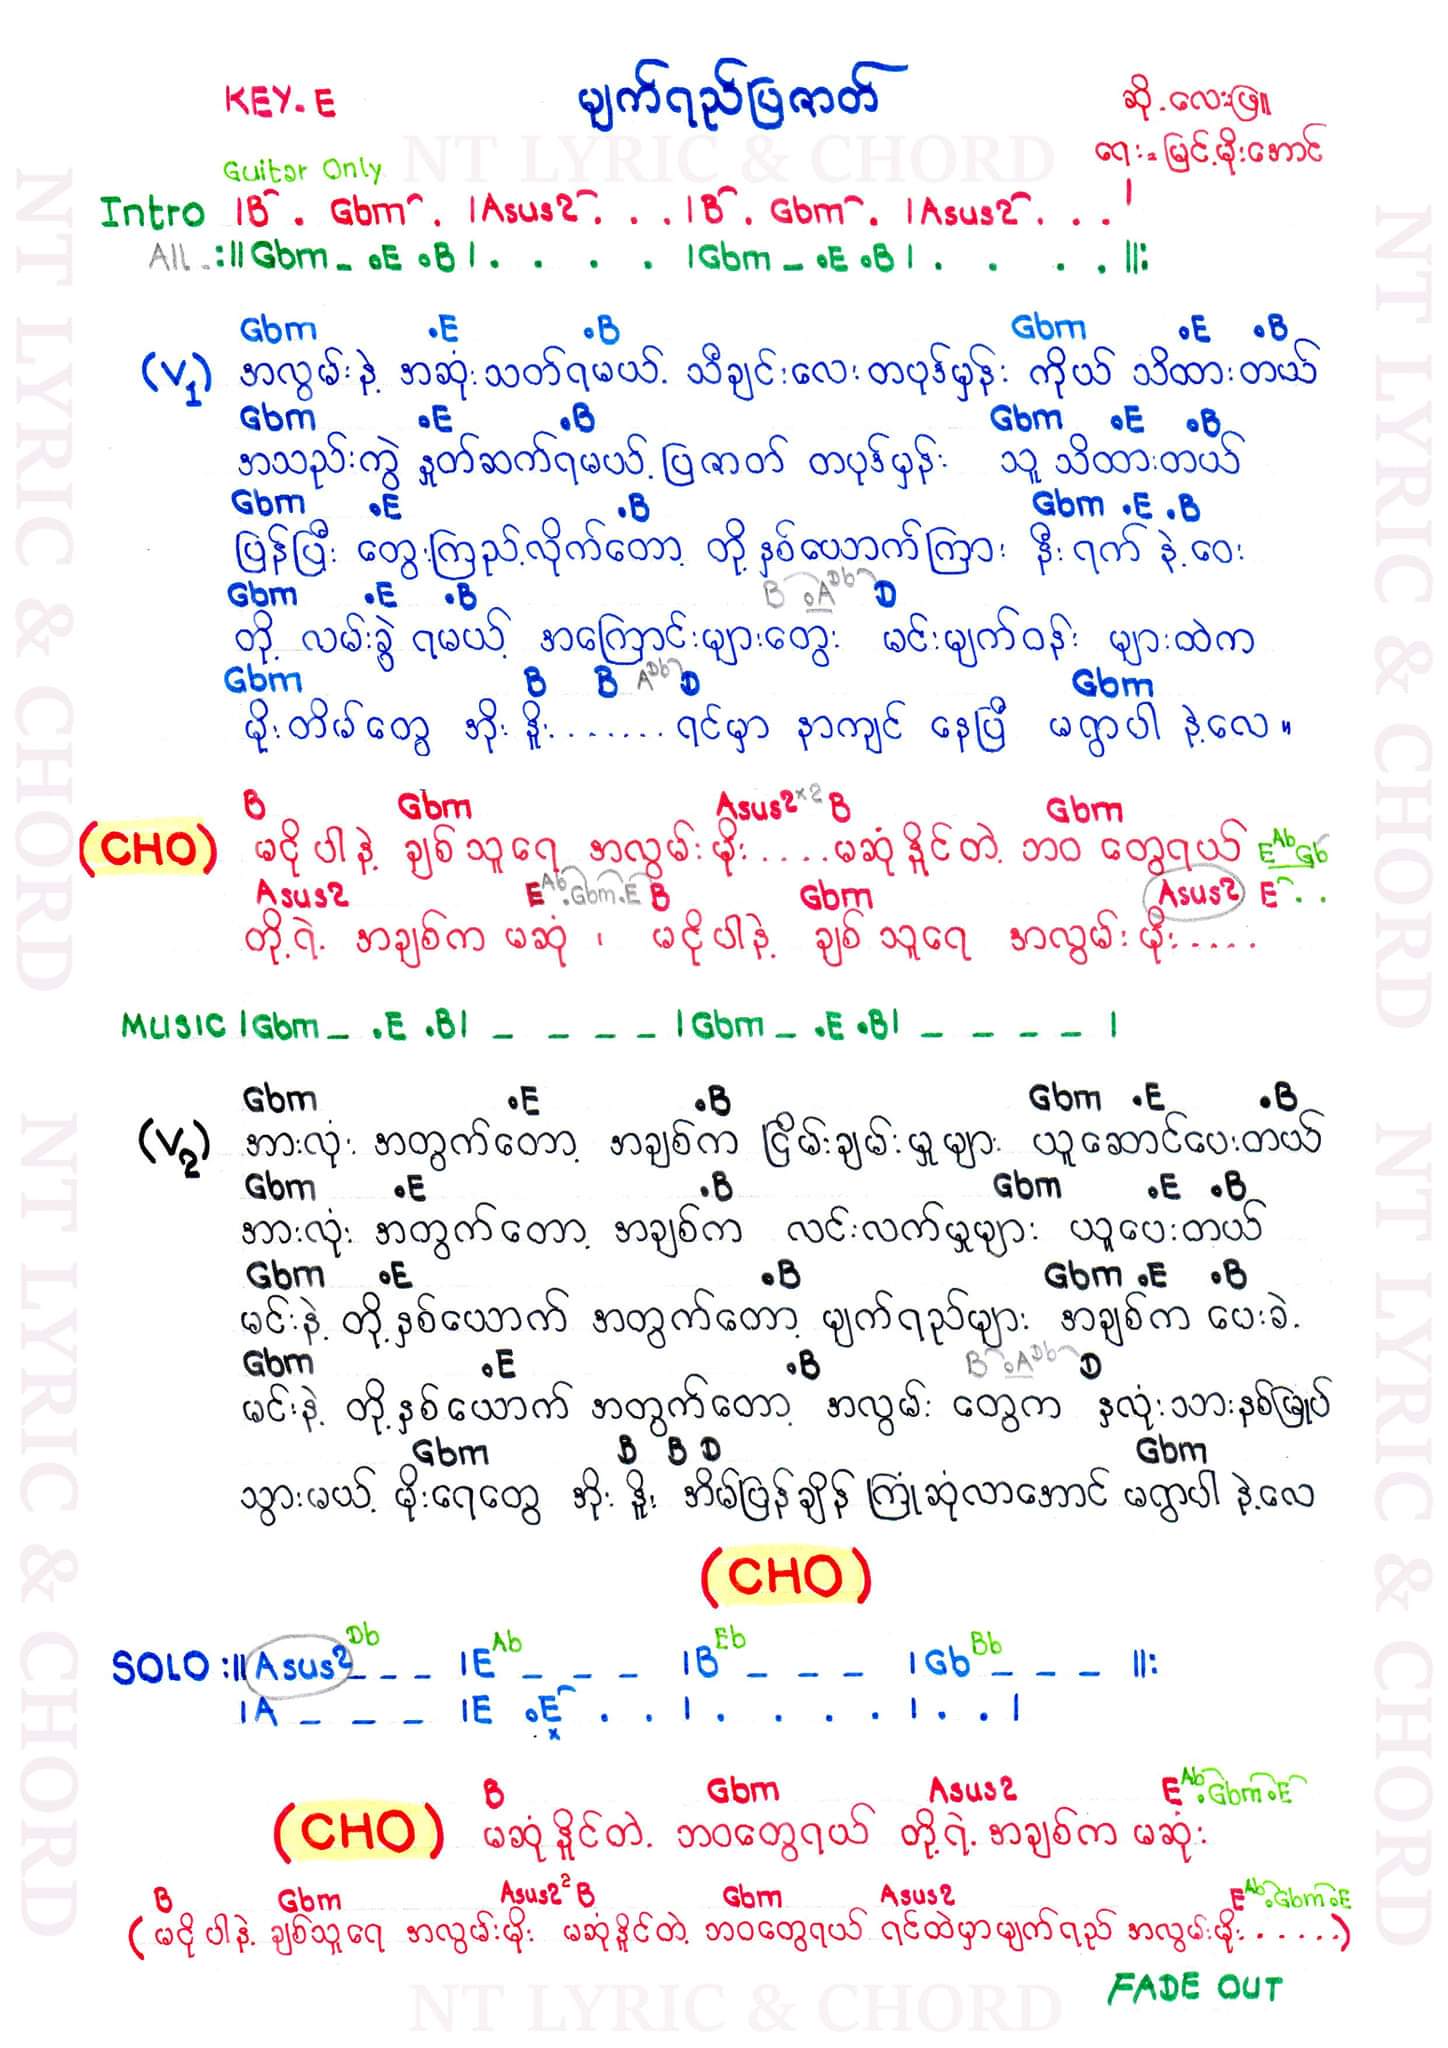 KEY. E
မျက်ရည်ပြဇာတ်
ဆို - လေးဖြူ။
ရေး = မြင့်မိုးအောင်
NT LYRIC & CHORD
Guitar Only
Intro |B . Gbm . |Asus2 . . . |B . Gbm . |Asus2 . . . |
All . :||Gbm _ .E .B | . . . . |Gbm _ .E .B | . . . . ||:
Gbm .E .B Gbm .E .B
(V1) အလွမ်းနဲ့ အဆုံးသတ်ရမယ့် သီချင်းလေးတပုဒ်မှန်း ကိုယ် သိထားတယ်
Gbm .E .B Gbm .E .B
အသည်းကွဲ နှုတ်ဆက်ရမယ့် ပြဇာတ် တပုဒ်မှန်း သူ သိထားတယ်
Gbm .E .B Gbm .E .B
ပြန်ပြီး တွေးကြည့်လိုက်တော့ တို့နှစ်ယောက်ကြား နီးရက် နဲ့ဝေး
Gbm .E .B B .A Db D
တို့ လမ်းခွဲ ရမယ့် အကြောင်းများတွေး မင်းမျက်ဝန်း များထဲက
Gbm B B A Db D Gbm
မိုးတိမ်တွေ အိုး နိူး....... ရင်မှာ နာကျင် နေပြီ မရွာပါ နဲ့လေ။
B Gbm Asus2 x2 B Gbm
(CHO) မငိုပါနဲ့ ချစ်သူရေ အလွမ်းမိုး.....မဆုံနိူင်တဲ့ ဘဝတွေရယ် E Ab Gb
Asus2 E Ab .Gbm .E B Gbm Asus2 E . .
တို့ရဲ့ အချစ်က မဆုံ ၊ မငိုပါနဲ့ ချစ်သူရေ အလွမ်းမိုး....
MUSIC |Gbm _ .E .B| _ _ _ _ |Gbm _ .E .B| _ _ _ _ |
Gbm .E .B Gbm .E .B
(V2) အားလုံး အတွက်တော့ အချစ်က ငြိမ်းချမ်းမှုများ ယူဆောင်ပေးတယ်
Gbm .E .B Gbm .E .B
အားလုံး အတွက်တော့ အချစ်က လင်းလက်မှုများ ယူပေးတယ်
Gbm .E .B Gbm .E .B
မင်းနဲ့ တို့နှစ်ယောက် အတွက်တော့ မျက်ရည်များ အချစ်က ပေးခဲ့
Gbm .E .B B .A Db D
မင်းနဲ့ တို့နှစ်ယောက် အတွက်တော့ အလွမ်း တွေက နှလုံးသားနစ်မြုပ်
Gbm B B D Gbm
သွားမယ့် မိုးရေတွေ အိုး နိူး အိမ်ပြန်ချိန် ကြုံဆုံလာအောင် မရွာပါ နဲ့လေ
(CHO)
SOLO :|| Asus2 Db _ _ _ |E Ab _ _ _ |B Eb _ _ _ |Gb Bb _ _ _ ||:
|A _ _ _ |E .E x . . | . . . . | . . |
B Gbm Asus2 E Ab .Gbm .E
(CHO) မဆုံနိူင်တဲ့ ဘဝတွေရယ် တို့ရဲ့ အချစ်က မဆုံး
B Gbm Asus2 2 B Gbm Asus2 E Ab .Gbm .E
(မငိုပါနဲ့ ချစ်သူရေ အလွမ်းမိုး မဆုံနိူင်တဲ့ ဘဝတွေရယ် ရင်ထဲမှာမျက်ရည် အလွမ်းမိုး......)
FADE OUT
NT LYRIC & CHORD
NT LYRIC & CHORD
NT LYRIC & CHORD
NT LYRIC & CHORD
NT LYRIC & CHORD